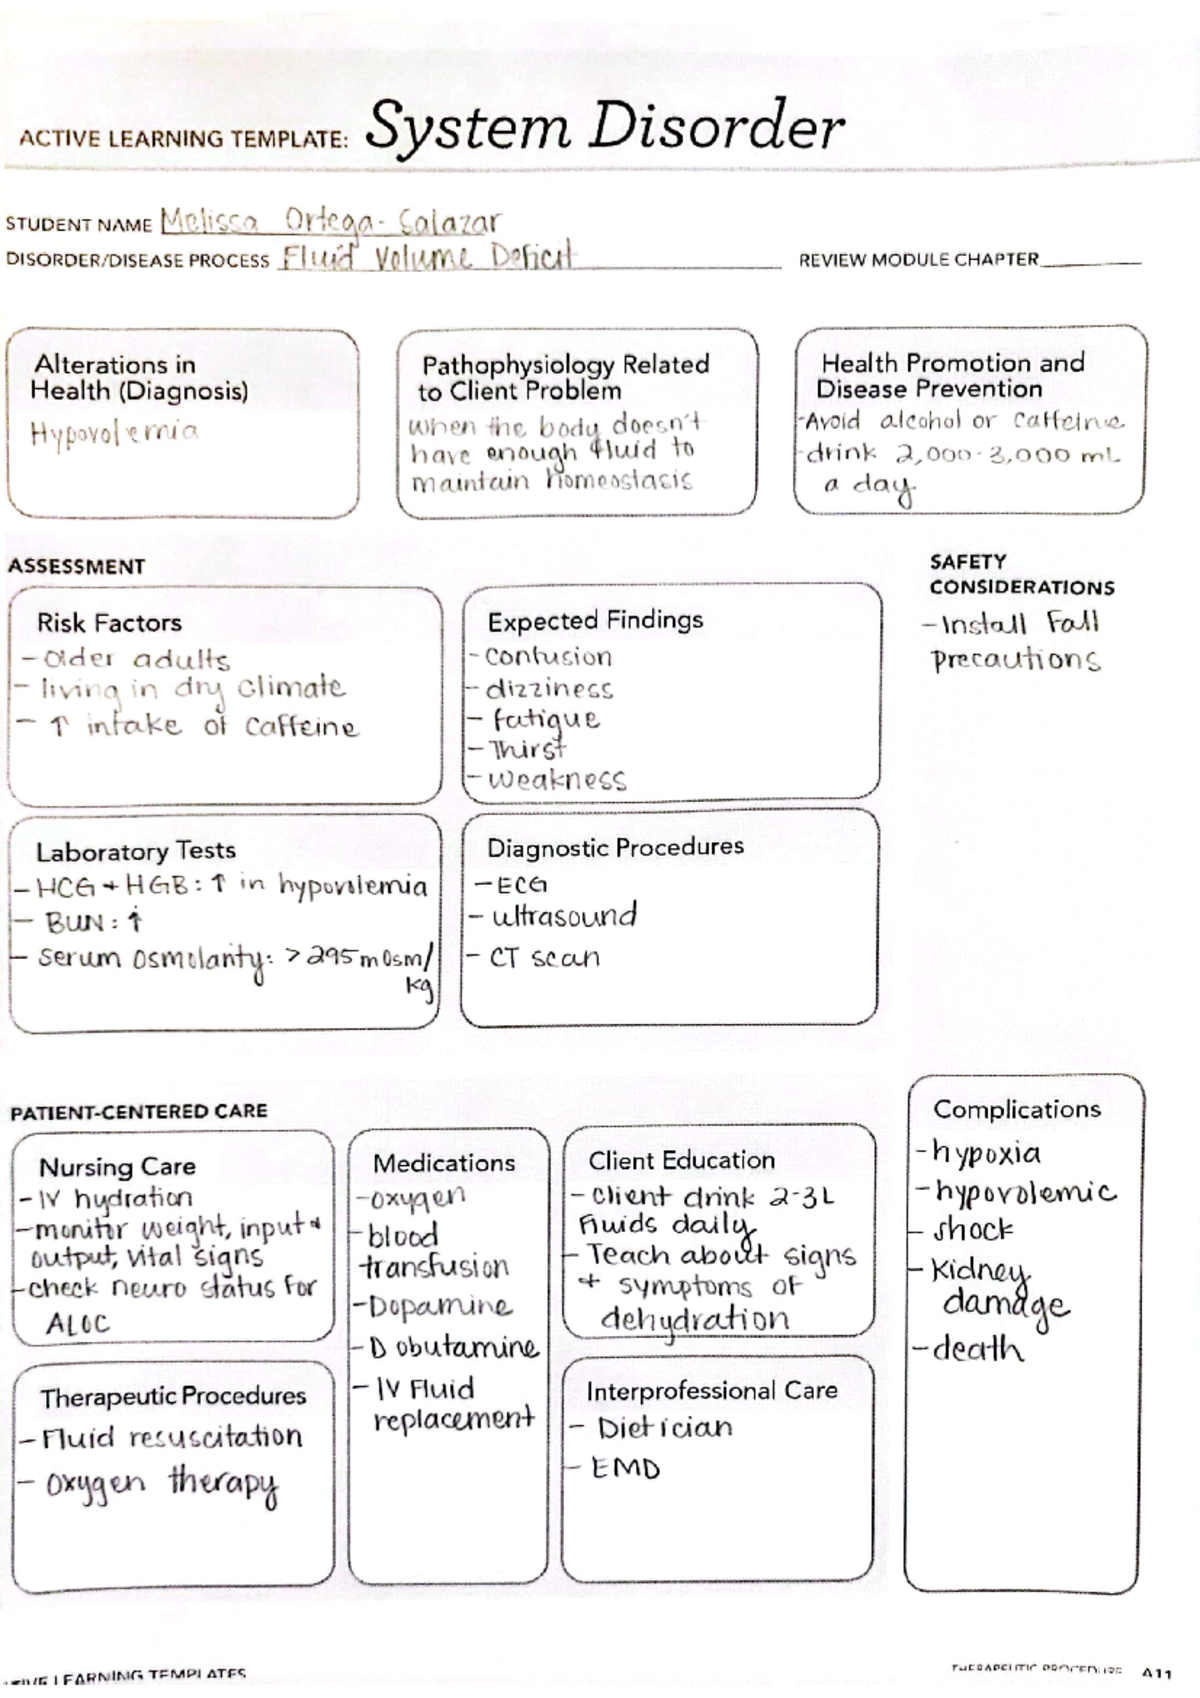 ACTIVE LEARNING TEMPLATE: System Disorder
STUDENT NAME Melissa Ortega-Salazar
DISORDER/DISEASE PROCESS Fluid Volume Deficit
REVIEW MODULE CHAPTER
Alterations in
Health (Diagnosis)
Hypovolemia
Pathophysiology Related
to Client Problem
when the body doesn't
have enough fluid to
maintain homeostasis
Health Promotion and
Disease Prevention
-Avoid alcohol or caffeine
-drink 2,000-3,000 mL
a day
ASSESSMENT
SAFETY
CONSIDERATIONS
-Install Fall
precautions
Risk Factors
-Older adults
- living in dry climate
- ↑ intake of caffeine
Expected Findings
-confusion
-dizziness
- fatigue
-Thirst
-weakness
Laboratory Tests
-HCG + HGB: ↑ in hypovolemia
- BUN: ↑
- Serum Osmolarity: >295 mOsm/
kg
Diagnostic Procedures
-ECG
- ultrasound
- CT scan
PATIENT-CENTERED CARE
Nursing Care
-IV hydration
-monitor weight, input +
output, vital signs
-check neuro status for
ALOC
Medications
-oxygen
-blood
transfusion
-Dopamine
-Dobutamine
- IV Fluid
replacement
Client Education
- Client drink 2-3L
fluids daily
- Teach about signs
+ symptoms of
dehydration
Complications
-hypoxia
-hypovolemic
- shock
-Kidney
damage
-death
Therapeutic Procedures
-Fluid resuscitation
- Oxygen therapy
Interprofessional Care
- Dietician
- EMD
LEARNING TEMPLATES
THERAPEUTIC PROCEDURE A11